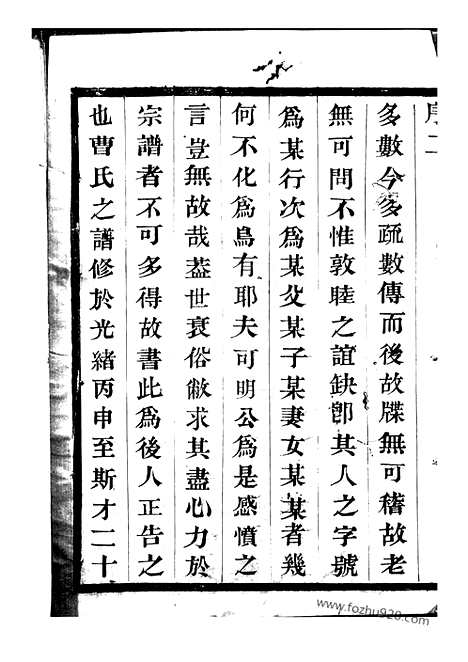 序二
多數今多疏數傳而後故牒無可稽故老
無可問不惟敦睦之誼缺卽其人之字號
爲某行次爲某父某子某妻女某某者幾
何不化爲烏有耶夫可明公爲是感憤之
言豈無故哉葢世衰俗敝求其盡心力於
宗譜者不可多得故書此爲後人正告之
也曹氏之譜修於光緒丙申至斯才二十
www.fozhu920.com